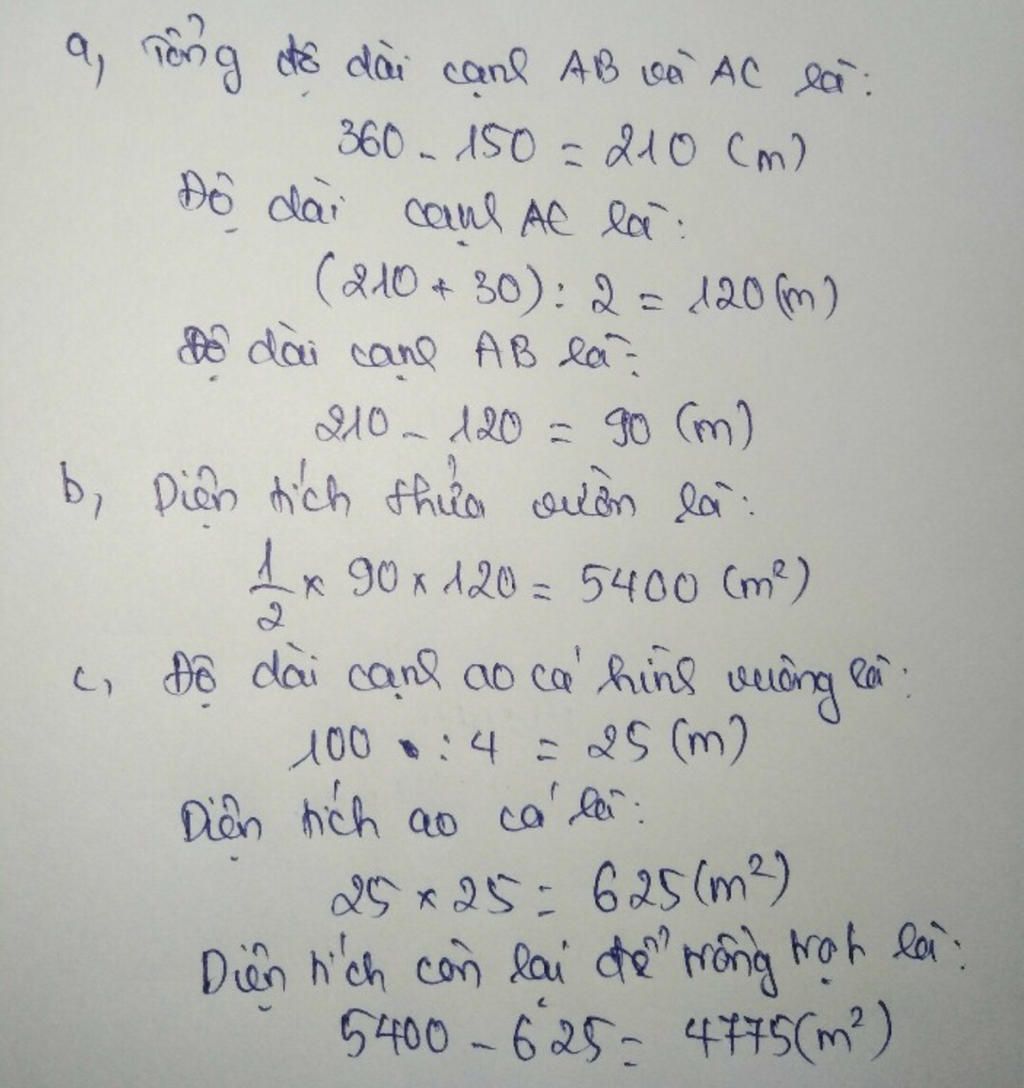 a, Tổng độ dài cạnh AB và AC là:
360 - 150 = 210 (m)
Độ dài cạnh AC là:
(210 + 30) : 2 = 120 (m)
Độ dài cạnh AB là:
210 - 120 = 90 (m)
b, Diện tích thửa vườn là:
1/2 x 90 x 120 = 5400 (m²)
c, Độ dài cạnh ao cá hình vuông là:
100 : 4 = 25 (m)
Diện tích ao cá là:
25 x 25 = 625 (m²)
Diện tích còn lại để trồng trọt là:
5400 - 625 = 4775 (m²)